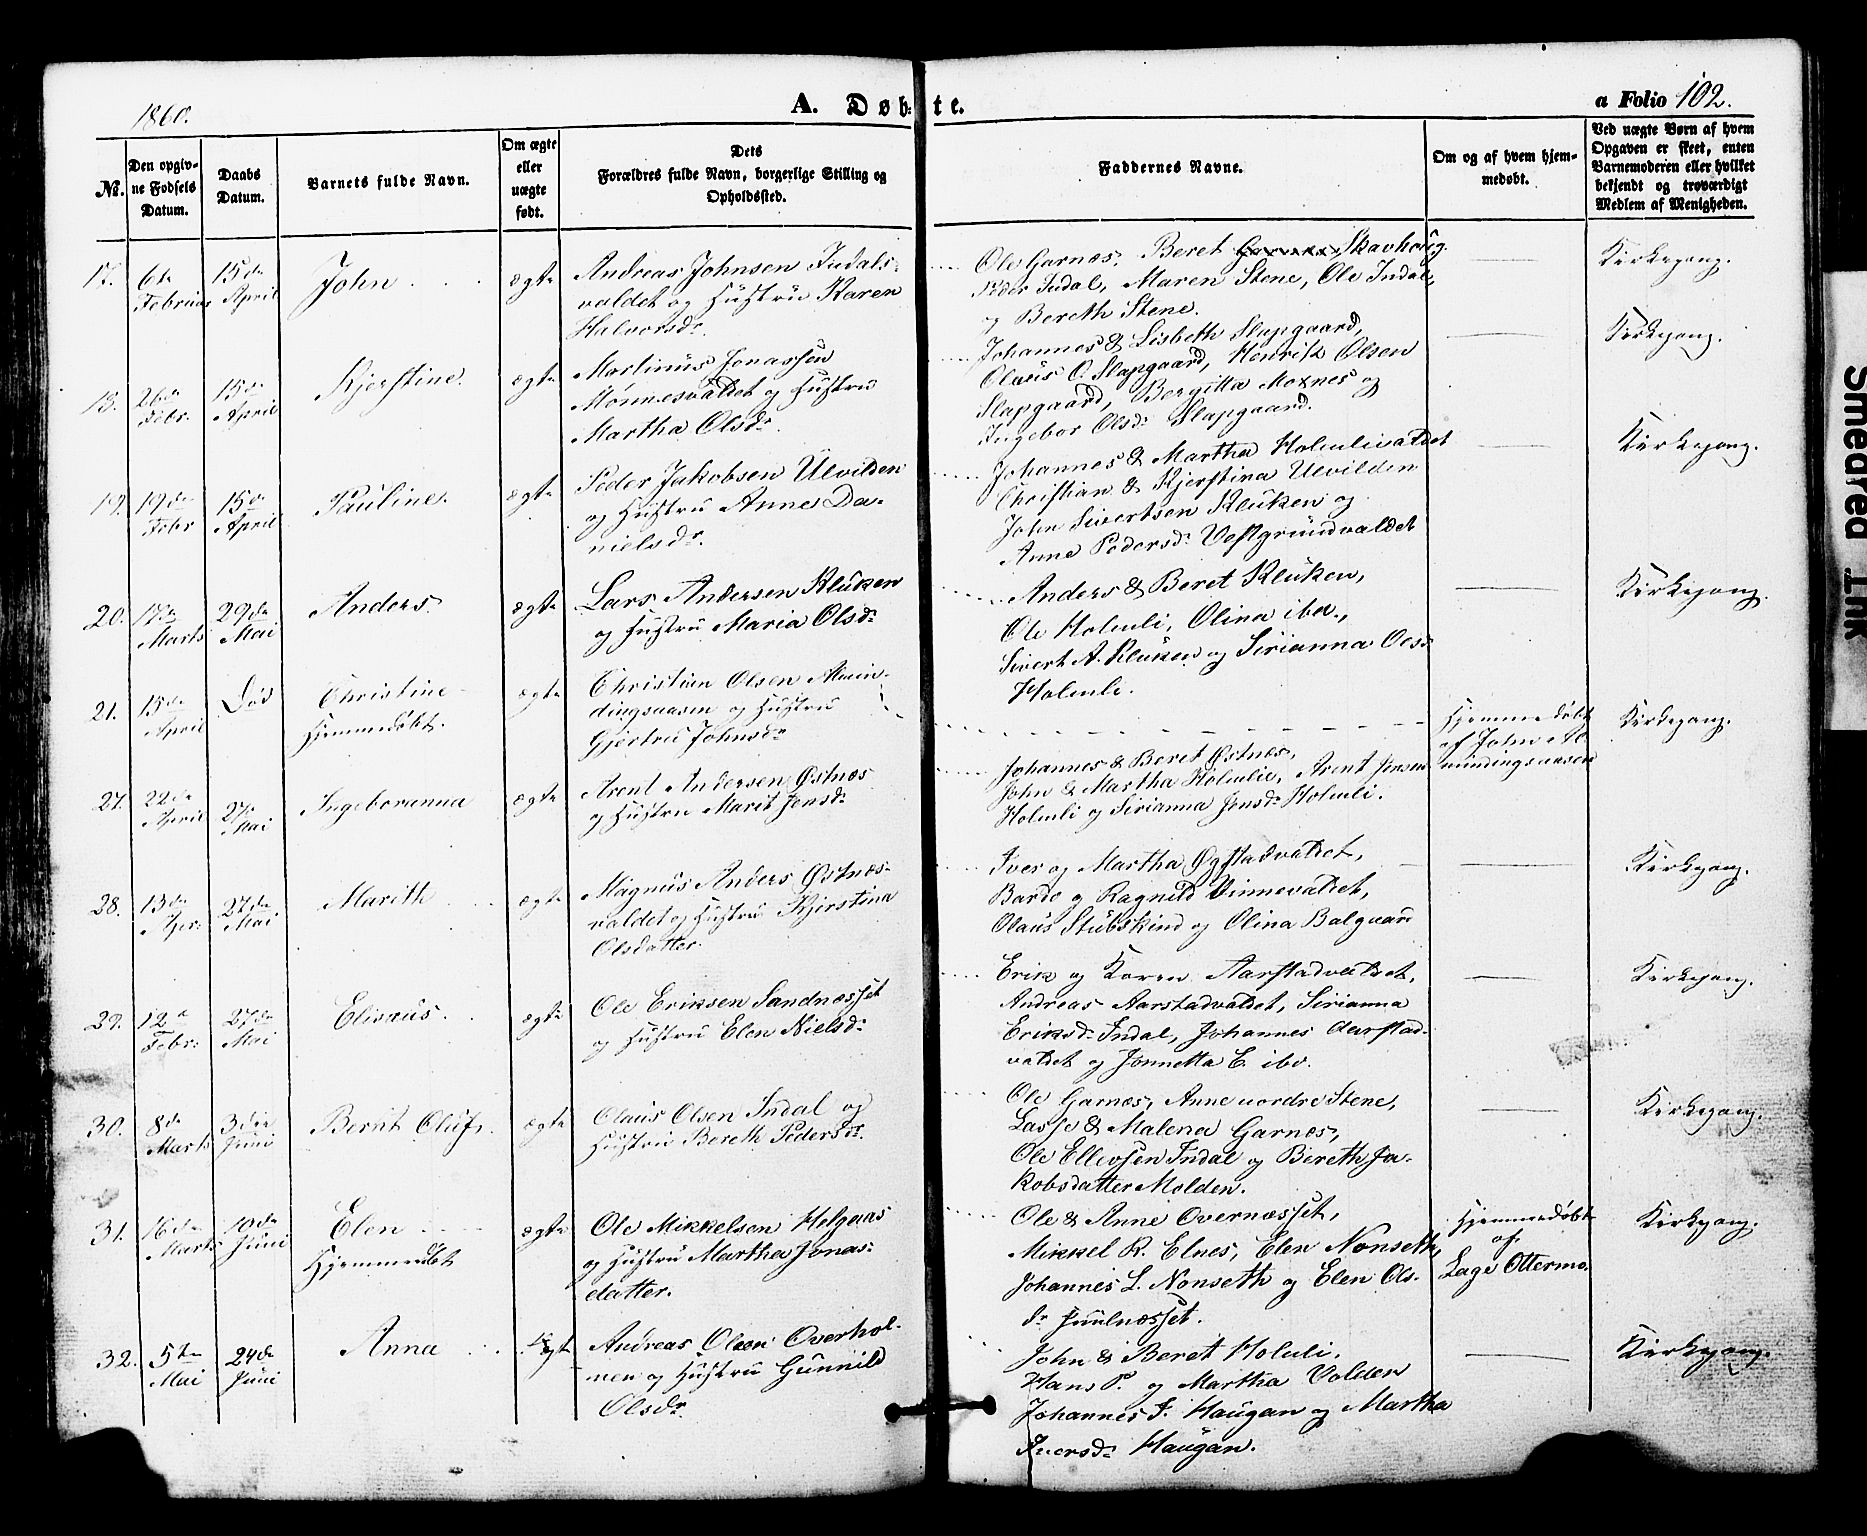 1860.
A. Døbte.
a Folio 102.
No.
Den opgivne Fødsels Datum.
Daabs Datum.
Barnets fulde Navn.
Om ægte eller uægte født.
Dets Forældres fulde Navn, borgerlige Stilling og Opholdssted.
Faddernes Navne.
Om og af hvem hjemmedøbt.
Ved uægte Børn af hvem Opgaven er skeet, enten Barnemoderen eller hvilket bekjendt og troværdigt Medlem af Menigheden.
17. 6te Februar 15de April John ægte
Andreas Johnsen Indals-
valdet og Hustru Karen
Halvorsdr.
Ole Garnæs, Beret Garnæs Skavhoug.
Peder Indal, Maren Stene, Ole Indal,
og Bereth Stene.
Kirkegang.
18. 26de Febr. 15de April Kjerstine. ægte
Martinus Jonassen
Mønnesvaldet og Hustru
Martha Olsdr.
Johannes & Lisbeth Slapgaard,
Olaus O. Slapgaard, Henrik Olsen
Slapgaard, Bergitta Moxnes og
Ingebor Olsdr Slapgaard.
Kirkegang.
19. 19de Febr 15de April Pauline. ægte
Peder Jakobsen Ulvilden
og Hustru Anne Da-
nielsdr.
Johannes & Martha Holmlivaldet
Christian & Kjerstina Ulvilden
John Sivertsen Kluken og
Anne Pedersdr Vestgrundvaldet
Kirkegang.
20. 17de Marts 29de Mai Anders ægte
Lars Andersen Kluken
og Hustru Maria Olsdr
Anders & Beret Kluken,
Ole Holmli, Olina ibd.,
Sivert A. Kluken og Sirianna Olsd
Holmli.
Kirkegang.
21. 15de April Død Christine
Hjemmedøbt. ægte
Christian Olsen Muin-
dingsaasen og Hustru
Gjertru Johnsdr
Hjemmedøbt
af John
mindingsaasen
Kirkegang.
27. 22de April 27de Mai Ingeboranna ægte
Arent Andersen Østnes
og Hustru Marit Jensdr
Johannes & Beret Østnes,
John & Martha Holmlie, Arent Jensen
Holmli og Sirianna Jensdr Holmli.
28. 13de Apr: 27de Mai Marith ægte
Magnus Anders Østnæs-
valdet og Hustru Kjerstina
Olsdatter.
Iver og Martha Øgstadvaldet,
Bardo og Ragnild Vinnevaldet,
Olaus Stubskind og Olina Balgaard
Kirkegang.
29. 12te Febr: 27de Mai Elisæus. ægte
Ole Eriksen Sandnæsset
og Hustru Elen Nielsdr
Erik og Karen Aarstadvaldet,
Andreas Aarstadvaldet, Sirianna
Eriksdr Indal, Johannes Aarstad-
valdet og Jonnetta E. ibd.
Kirkegang.
30. 8de Marts 3die Juni Bernt Oluf. ægte
Olaus Olsen Indal og
Hustru Bereth Pedersdr.
Ole Garnæs, Anne nordre Stene,
Lasse & Malena Garnes,
Ole Ellevsen Indal og Bereth Ja-
kobsdatter Molden.
Kirkegang.
31. 16de Marts 10de Juni Elen
Hjemmedøbt ægte
Ole Mikkelsen Helgeaas
og Hustru Martha Jonas-
datter.
Ole & Anne Overnæsset,
Mikkel R. Elnes, Elen Nonseth,
Johannes L. Nonseth og Elen Ols-
dr Juulnæsset.
Hjemmedøbt
af
Lage Ottermo.
Kirkegang.
32. 5te Mai 24de Juni Anna ægte
Andreas Olsen Overhol-
men og Hustru Gunnild
Olsdr.
John & Beret Holmli,
Hans P. og Martha Volden
Johannes I. Haugan og Martha
Iversdr Haugan.
Kirkegang.
Smeared Ink